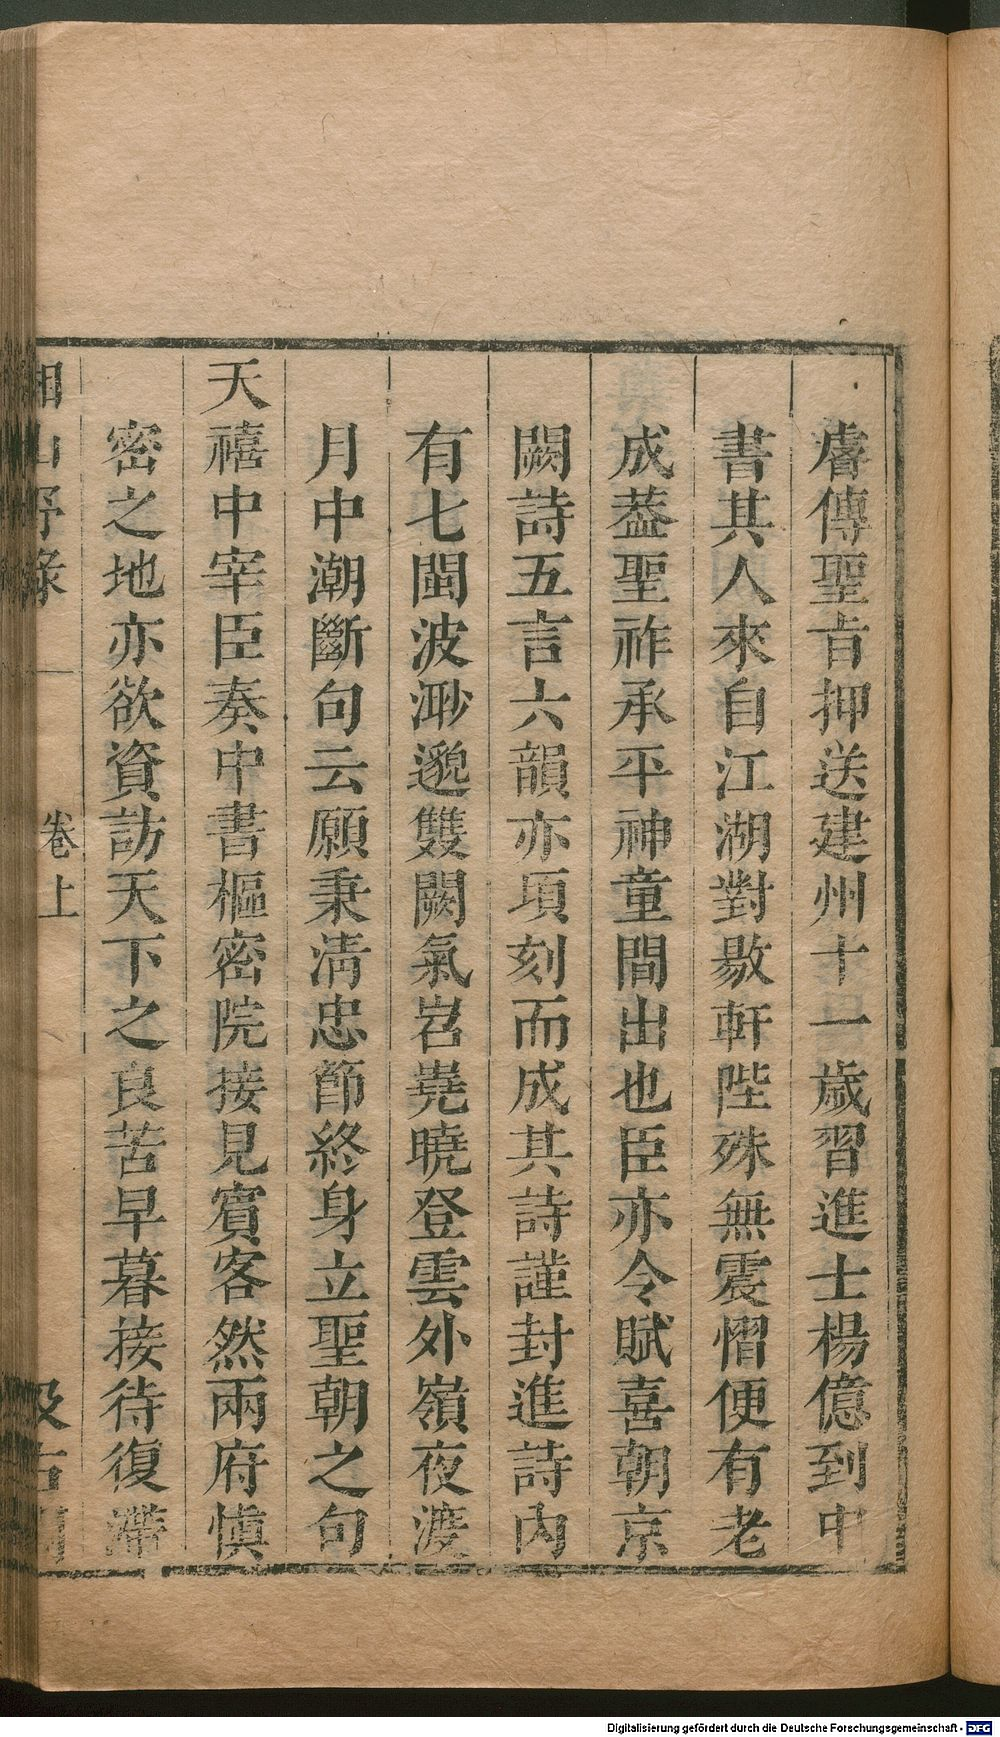 睿傳聖旨押送建州十一歲習進士楊億到中
書其人來自江湖對敭軒陛殊無震慴便有老
成葢聖祚承平神童間出也臣亦令賦喜朝京
闕詩五言六韻亦頃刻而成其詩謹封進詩內
有七閩波渺邈雙闕氣岧嶤曉登雲外嶺夜渡
月中潮斷句云願秉清忠節終身立聖朝之句
天禧中宰臣奏中書樞密院接見賓客然兩府慎
密之地亦欲資訪天下之良苦早暮接待復滯
湘山野錄 卷上 汲古閣
Digitalisierung gefördert durch die Deutsche Forschungsgemeinschaft - DFG